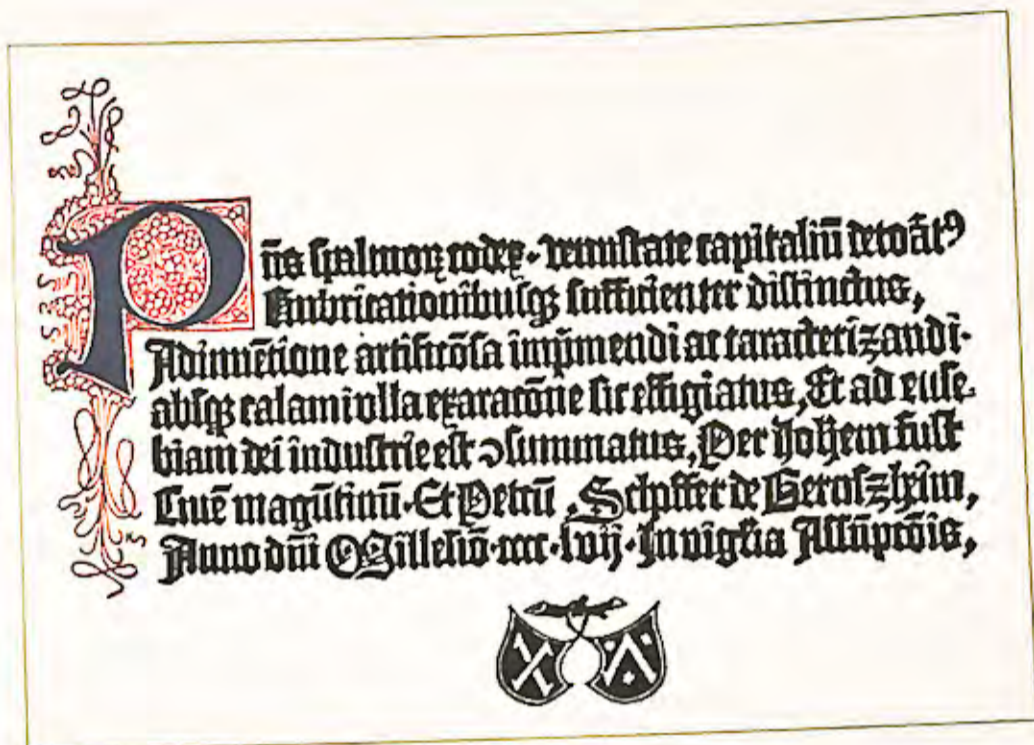 Pñs spalmoꝝ codex · venustate capitaliū decoãt⁹
Rubricationibusqꝫ sufficienter distinctus,
Adinuētione artificõsa imp̃mendi ac caracterizandi·
absqꝫ calami vlla exaracõne sic effigiatus, Et ad euse-
biam dei industrie est ↄsummatus, Per Joh̃em fust
Ciuē magūtinū · Et Petrū Schoffer de Gernszheim,
Anno dñi Millesiō · cccc · lvij · In vigl̃ia Assũpcõis,